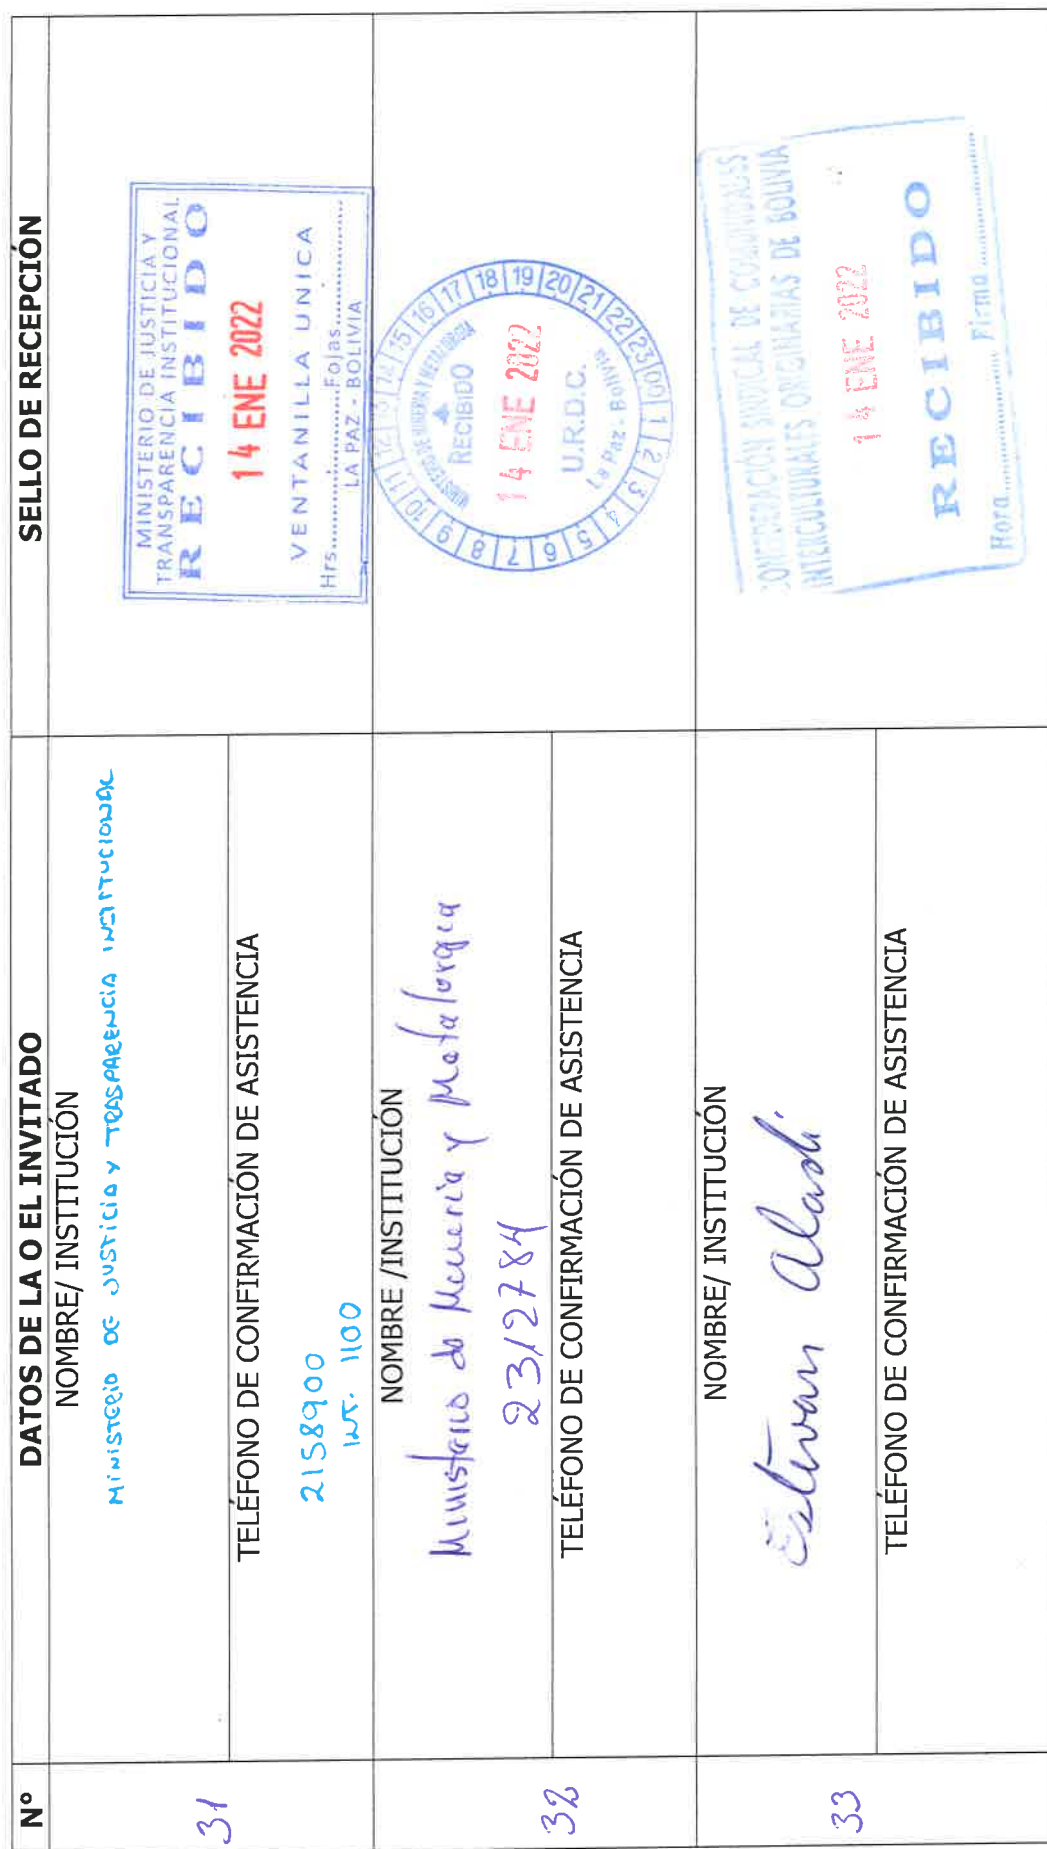 Nº
DATOS DE LA O EL INVITADO
SELLO DE RECEPCIÓN
31
NOMBRE/ INSTITUCIÓN
MINISTERIO DE JUSTICIA Y TRASPARENCIA INSTITUCIONAL
TELÉFONO DE CONFIRMACIÓN DE ASISTENCIA
2158900
INT. 1100
MINISTERIO DE JUSTICIA Y
TRANSPARENCIA INSTITUCIONAL
RECIBIDO
14 ENE 2022
VENTANILLA UNICA
Hrs.............Fojas.............
LA PAZ - BOLIVIA
32
NOMBRE /INSTITUCIÓN
Ministerio de Mineria y Metalurgia
2312784
TELÉFONO DE CONFIRMACIÓN DE ASISTENCIA
MINISTERIO DE MINERIA Y METALURGIA
RECIBIDO
14 ENE 2022
U.R.D.C.
La Paz - Bolivia
0 1 2 3 4 5 6 7 8 9 10 11 12 13 14 15 16 17 18 19 20 21 22 23
33
NOMBRE/ INSTITUCIÓN
Estivan Aladi
TELÉFONO DE CONFIRMACIÓN DE ASISTENCIA
CONFEDERACIÓN SINDICAL DE COMUNIDADES
INTERCULTURALES ORIGINARIAS DE BOLIVIA
14 ENE 2022
RECIBIDO
Hora.............Firma.............